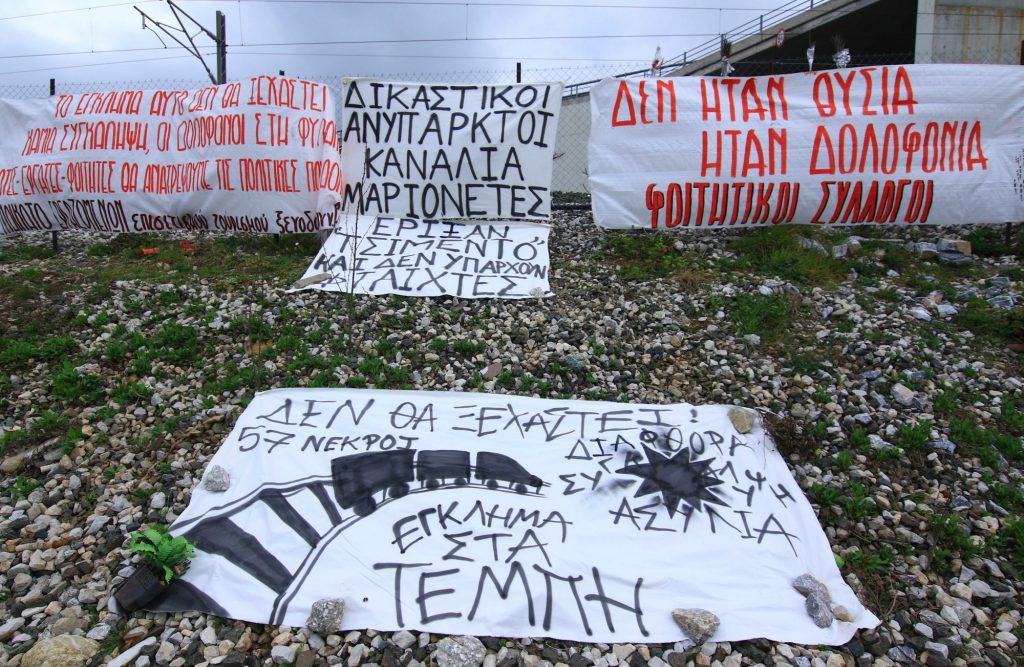 ΤΟ ΕΓΚΛΗΜΑ ΑΥΤΟ ΔΕΝ ΘΑ ΞΕΧΑΣΤΕΙ
ΚΑΜΙΑ ΣΥΓΚΑΛΗΨΗ, ΟΙ ΔΟΛΟΦΟΝΟΙ ΣΤΗ
ΕΡΓΑΤΕΣ-ΦΟΙΤΗΤΕΣ ΘΑ ΑΝΑΤΡΕΨΟΥΜΕ ΤΙΣ ΠΟΛΙΤΙΚΕΣ
ΕΡΓΑΖΟΜΕΝΩΝ ΕΠΙΣΙΤΙΣΜΟΥ ΤΟΥΡΙΣΜΟΥ
ΔΙΚΑΣΤΙΚΟΙ
ΑΝΥΠΑΡΚΤΟΙ
ΚΑΝΑΛΙΑ
ΜΑΡΙΟΝΕΤΕΣ
ΕΡΙΞΑΝ
ΤΣΙΜΕΝΤΟ
ΚΑΙ ΔΕΝ ΥΠΑΡΧΟΥΝ
ΔΕΝ ΗΤΑΝ ΘΥΣΙΑ
ΗΤΑΝ ΔΟΛΟΦΟΝΙΑ
ΦΟΙΤΗΤΙΚΟΙ ΣΥΛΛΟΓΟΙ
ΔΕΝ ΘΑ ΞΕΧΑΣΤΕΙ!
57 ΝΕΚΡΟΙ
ΔΙΑΦΘΟΡΑ
ΑΣΥΛΙΑ
ΕΓΚΛΗΜΑ
ΣΤΑ
ΤΕΜΠΗ